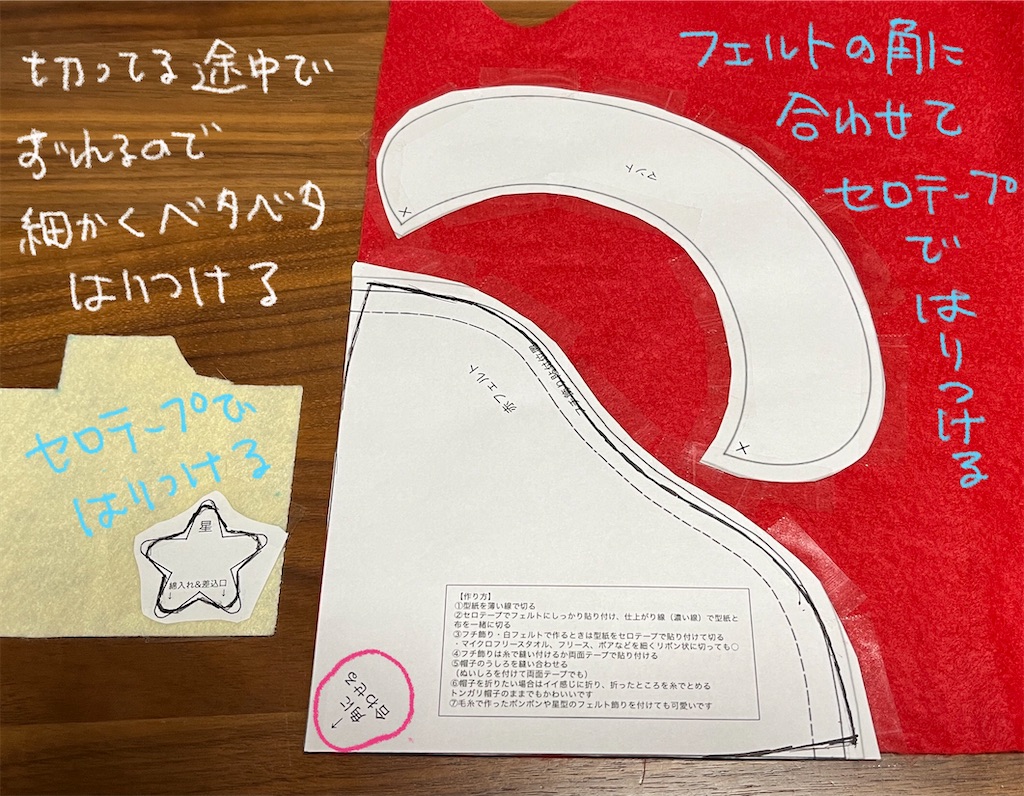 切ってる途中で
ずれるので
細かくベタベタ
はりつける
フェルトの角に
合わせて
セロテープ
で
はりつける
マント
×
×
赤フェルト
フチ飾り貼付位置
セロテープで
はりつける
星
綿入れ&差込口
↓ ↓
【作り方】
①型紙を薄い線で切る
②セロテープでフェルトにしっかり貼り付け、仕上がり線（濃い線）で型紙と
布を一緒に切る
③フチ飾り・白フェルトで作るときは型紙をセロテープで貼り付けて切る
・マイクロフリースタオル、フリース、ボアなどを細くリボン状に切っても○
④フチ飾りは糸で縫い付けるか両面テープで貼り付ける
⑤帽子のうしろを縫い合わせる
（ぬいしろを付けて両面テープでも）
⑥帽子を折りたい場合はイイ感じに折り、折ったところを糸でとめる
トンガリ帽子のままでもかわいいです
⑦毛糸で作ったボンボンや星型のフェルト飾りを付けても可愛いです
↑
角に
合わせる